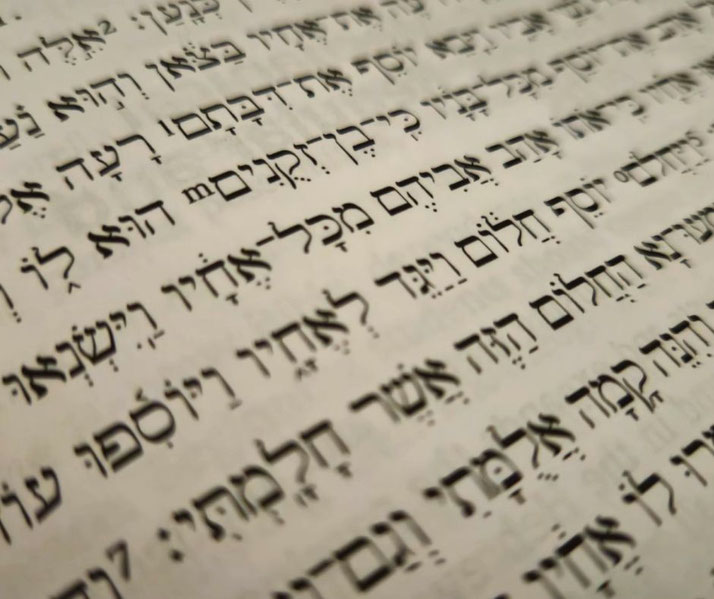 כְּנָעַן׃ 2אֵלֶּה
אֶת־אֶחָיו בַּצֹּאן וְהוּא
וַיָּבֵא יוֹסֵף אֶת־דִּבָּתָם1 רָעָה
אֶת־יוֹסֵף מִכָּל־בָּנָיו כִּי־בֶן־זְקֻנִיםm הוּא לוֹ
כִּי־אֹתוֹ אָהַב אֲבִיהֶם מִכָּל־אֶחָיו וַיִּשְׂנְאוּ
יוֹסֵף חֲלוֹם וַיַּגֵּד לְאֶחָיו וַיּוֹסִפוּ
הַחֲלוֹם הַזֶּה אֲשֶׁר חָלָמְתִּי׃ 7
וְהִנֵּה קָמָה אֲלֻמָּתִי וְגַם־
לוֹ אֶחָיו